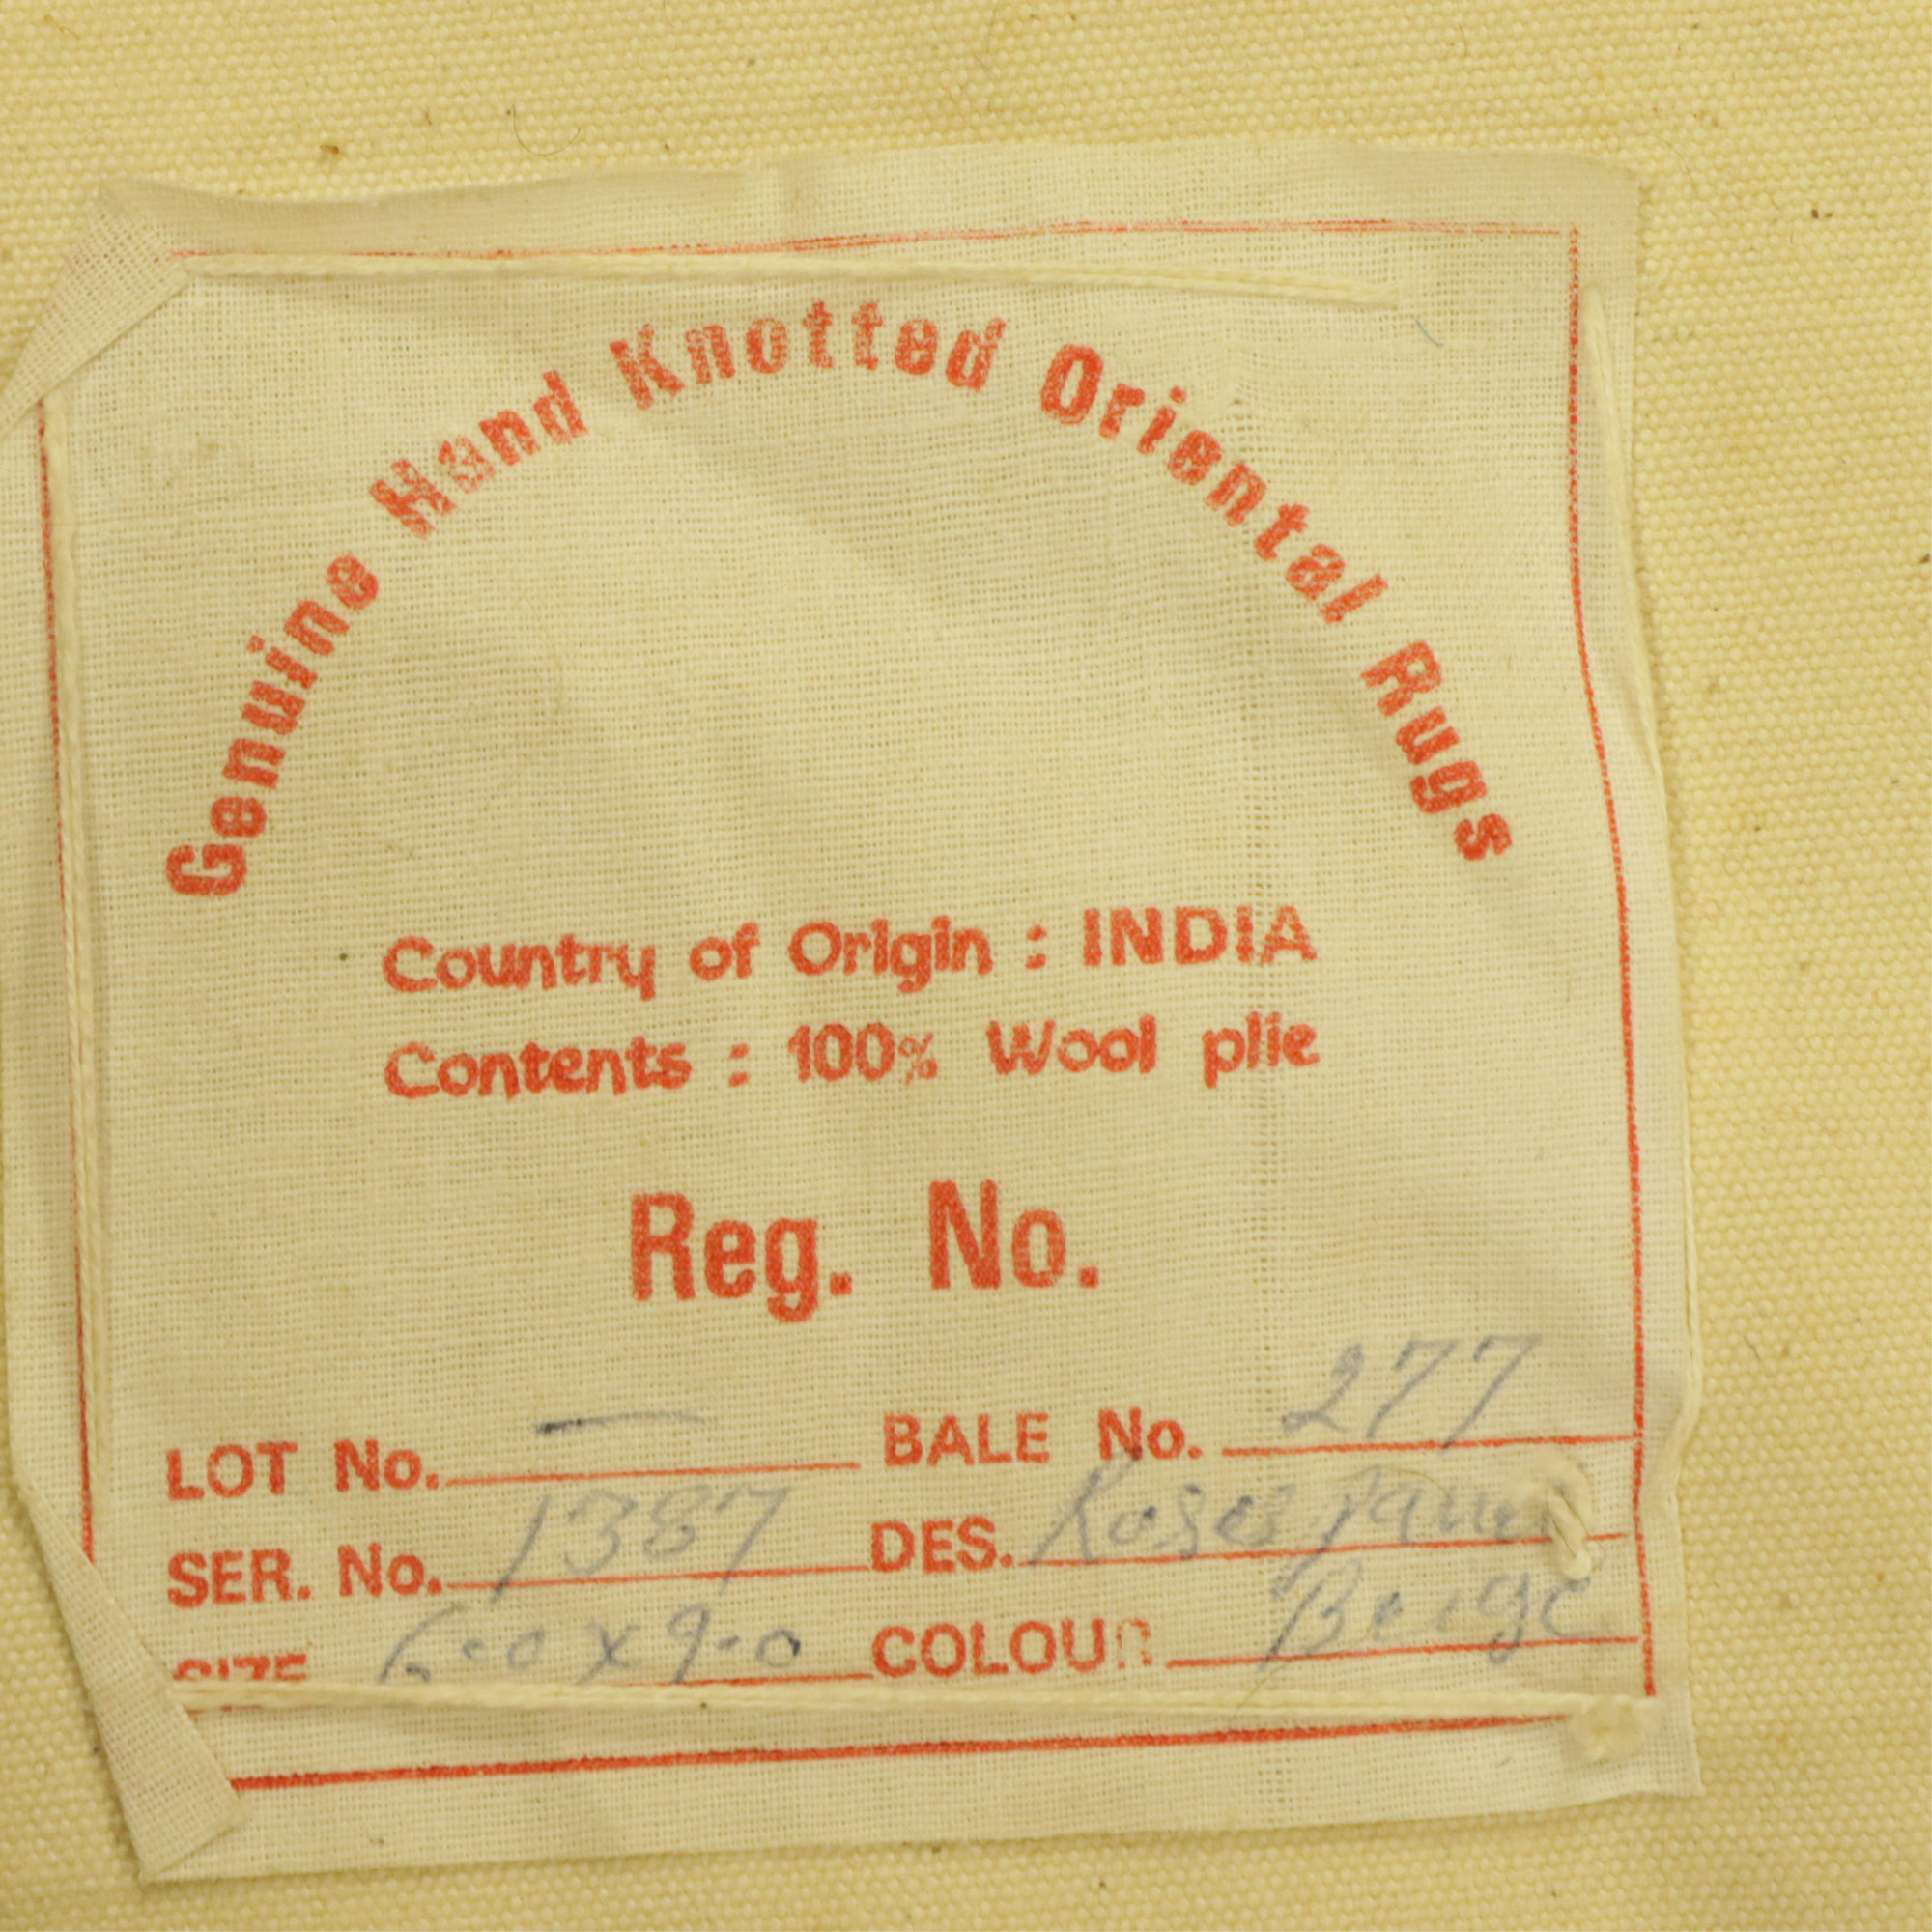 Genuine Hand Knotted Oriental Rugs
Country of Origin : INDIA
Contents : 100% Wool pile
Reg. No.
LOT No. — BALE No. 277
SER. No. 1387 DES.
SIZE 6-0 x 9-0 COLOUR Beige